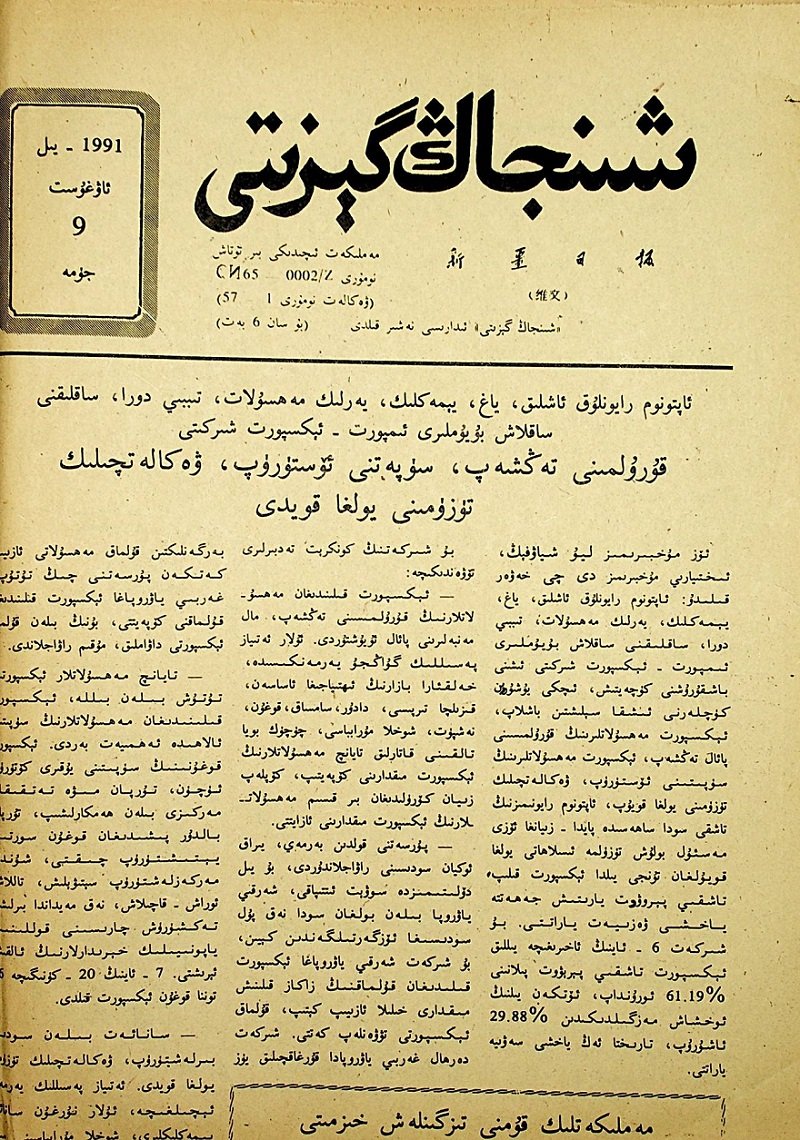 شىنجاڭ گېزىتى
1991 - يىل
ئاۋغۇست
9
جۈمە
新疆日报
(维文)
مەملىكەت ئىچىدىكى بىر تۇتاش
نومۇرى СИ65 — 0002/Z
(ۋەكالەت نومۇرى 1 — 57)
«شىنجاڭ گېزىتى» ئىدارىسى نەشر قىلدى (بۇ سان 6 بەت)
ئاپتونوم رايونلۇق ئاشلىق، ياغ، يېمەكلىك، يەرلىك مەھسۇلات، تىببىي دورا، ساقلىقنى
ساقلاش بۇيۇملىرى ئىمپورت - ئېكسپورت شىركىتى
قۇرۇلمىنى تەڭشەپ، سۈپەتنى ئۆستۈرۈپ، ۋەكالەتچىلىك
تۈزۈمىنى يولغا قويدى
ئۆز مۇخبىرىمىز ليۇ شياۋفېڭ،
ئىختىيارىي مۇخبىرىمىز دى چى خەۋەر
قىلىدۇ: ئاپتونوم رايونلۇق ئاشلىق، ياغ،
يېمەكلىك، يەرلىك مەھسۇلات، تىببىي
دورا، ساقلىقنى ساقلاش بۇيۇملىرى
ئىمپورت - ئېكسپورت شىركىتى ئىشنى
باشقۇرۇشنى كۈچەيتىش، ئىچكى يۇشۇرۇن
كۈچلەرنى ئىشقا سېلىشتىن باشلاپ،
ئېكسپورت مەھسۇلاتلىرىنىڭ قۇرۇلمىسىنى
پائال تەڭشەپ، ئېكسپورت مەھسۇلاتلىرىنىڭ
سۈپىتىنى ئۆستۈرۈپ، ۋەكالەتچىلىك
تۈزۈمىنى يولغا قويۇپ، ئاپتونوم رايونىمىزنىڭ
تاشقى سودا ساھەسىدە پايدا - زىيانغا ئۆزى
مەسئۇل بولۇش تۈزۈلمە ئىسلاھاتى يولغا
قويۇلغان تۇنجى يىلدا ئېكسپورت قىلىپ
تاشقى پېرېۋوت يارىتىش جەھەتتە
ياخشى ۋەزىيەت ياراتتى. بۇ
شىركەت 6 - ئاينىڭ ئاخىرىغىچە يىللىق
ئېكسپورت تاشقى پېرېۋوت پىلانىنى
61.19% ئورۇنداپ، ئۆتكەن يىلنىڭ
ئوخشاش مەزگىلىدىكىدىن 29.88%
ئاشۇرۇپ، تارىختا ئەڭ ياخشى سەۋىيە
ياراتتى.
بۇ شىركەتنىڭ كونكرېت تەدبىرلىرى
تۆۋەندىكىچە:
— ئېكسپورت قىلىنىدىغان مەھسۇ-
لاتلارنىڭ قۇرۇلمىسىنى تەڭشەپ، مال
مەنبەلىرىنى پائال ئۇيۇشتۇردى. ئۇلار ئەتىياز
پەسىللىك گۇاڭجۇ يەرمەنكىسىدە،
خەلقئارا بازارنىڭ ئېھتىياجىغا ئاساسەن،
قىزىلچا تىرىپىسى، دادۇر، سامساق، قوغۇن،
نەشپۈت، شوخلا مۇرابباسى، چۈچۈك بۇيا
تالقىنى قاتارلىق تايانچ مەھسۇلاتلارنىڭ
ئېكسپورت مىقدارىنى كۆپەيتىپ، كۆپلەپ
زىيان كۆرۈلىدىغان بىر قىسىم مەھسۇلات-
لارنىڭ ئېكسپورت مىقدارىنى ئازايتتى.
— پۇرسەتنى قولدىن بەرمەي، يىراق
ئوكيان سودىسىنى راۋاجلاندۇردى، بۇ يىل
دۆلىتىمىزدە سوۋېت ئىتتىپاقى، شەرقىي
ياۋروپا بىلەن بولغان سودا نەق پۇل
سودىسىغا ئۆزگەرتىلگەندىن كېيىن،
بۇ شىركەت شەرقىي ياۋروپاغا ئېكسپورت
قىلىدىغان قۇلماقنىڭ زاكاز قىلىنىش
مىقدارى خېلىلا ئازىيىپ كېتىپ، قۇلماق
ئېكسپورتى تۆۋەنلەپ كەتتى. شىركەت
دەرھال غەربىي ياۋروپادا قۇرغاقچىلىق يۈز
بەرگەنلىكتىن قۇلماق مەھسۇلاتى
كەتكەن پۇرسەتنى چىڭ تۇتۇپ
غەربىي ياۋروپاغا ئېكسپورت
قۇلماقنى كۆپەيتتى، بۇنىڭ بىلەن
ئېكسپورتى داۋاملىق، مۇقىم راۋاجلاندى.
— تايانچ مەھسۇلاتلار
تۇتۇش بىلەن بىللە،
قىلىنىدىغان مەھسۇلاتلارنىڭ
ئالاھىدە ئەھمىيەت بەردى.
قوغۇنىنىڭ سۈپىتىنى يۇقىرى
ئۈچۈن، تۇرپان مېۋە
مەركىزى بىلەن ھەمكارلىشىپ،
بالدۇر پىشىدىغان قوغۇن
يېتىشتۈرۈپ چىقتى،
مەركەزلەشتۈرۈپ سېتىۋېلىش،
ئوراش - قاچىلاش، نەق مەيداندا
تەكشۈرۈش چارىسىنى
ياپونىيىلىك خېرىدارلارنىڭ
ئېرىشتى. 7 - ئاينىڭ 20 - كۈنىگىچە
توننا قوغۇن ئېكسپورت قىلدى.
— سانائەت بىلەن
بىرلەشتۈرۈپ، ۋەكالەتچىلىك
يولغا قويدى. ئەتىياز پەسىللىك
ئىچىلغىچە، ئۇلار نۇرغۇن
يېمەكلىكلىرى، شوخلا مۇرابباسى
مەملىكەتلىك قۇمنى تىزگىنلەش خىزمىتى